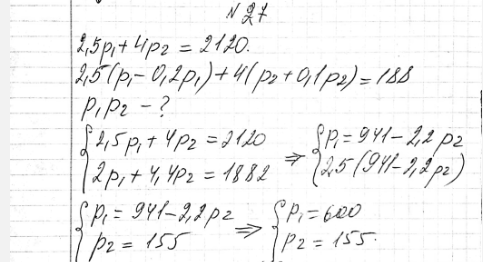 №27
2,5p₁+4p₂=2120.
2,5(p₁-0,2p₁)+4(p₂+0,1p₂)=188
p₁p₂-?
{2,5p₁+4p₂=2120 ⇒ {p₁=941-2,2p₂
{2p₁+4,4p₂=1882 {2,5(941-2,2p₂)
{p₁=941-2,2p₂ ⇒ {p₁=600
{p₂=155 {p₂=155.